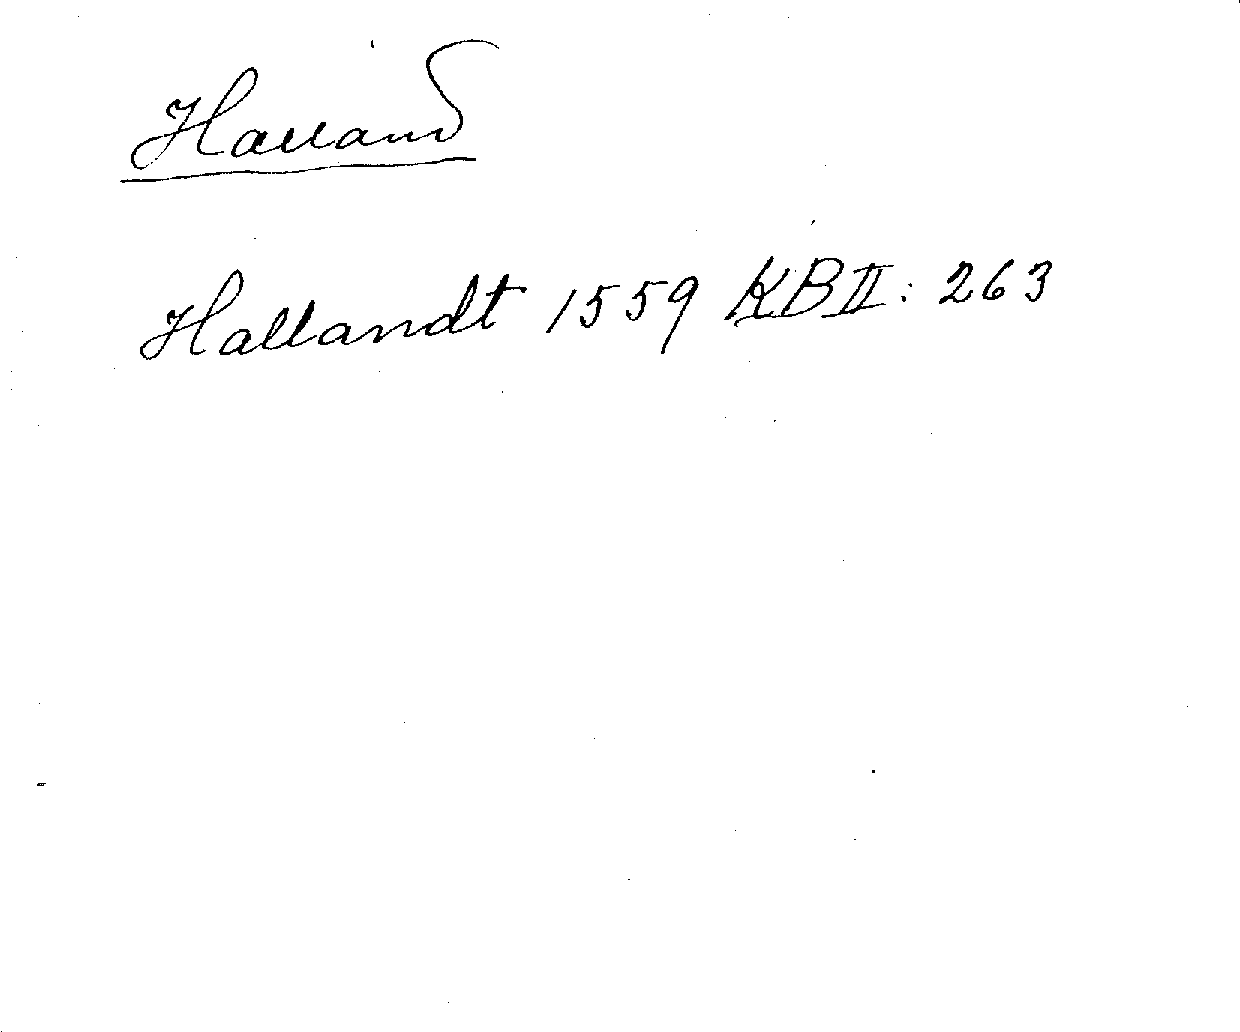 Halland
Hallandt 1559 KBII: 263